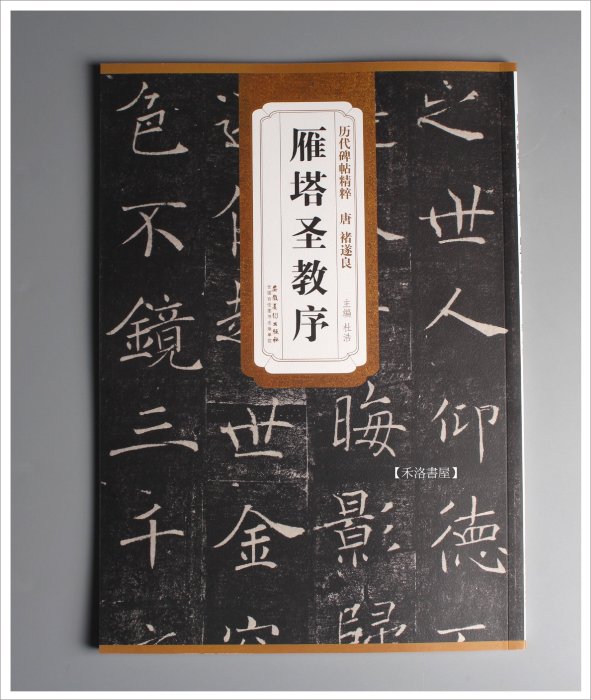 历代碑帖精粹 唐 褚遂良
雁塔圣教序
主编 杜浩
安徽美术出版社
之世人仰德
晦影歸
世金容
色不鏡三千
【禾洛書屋】